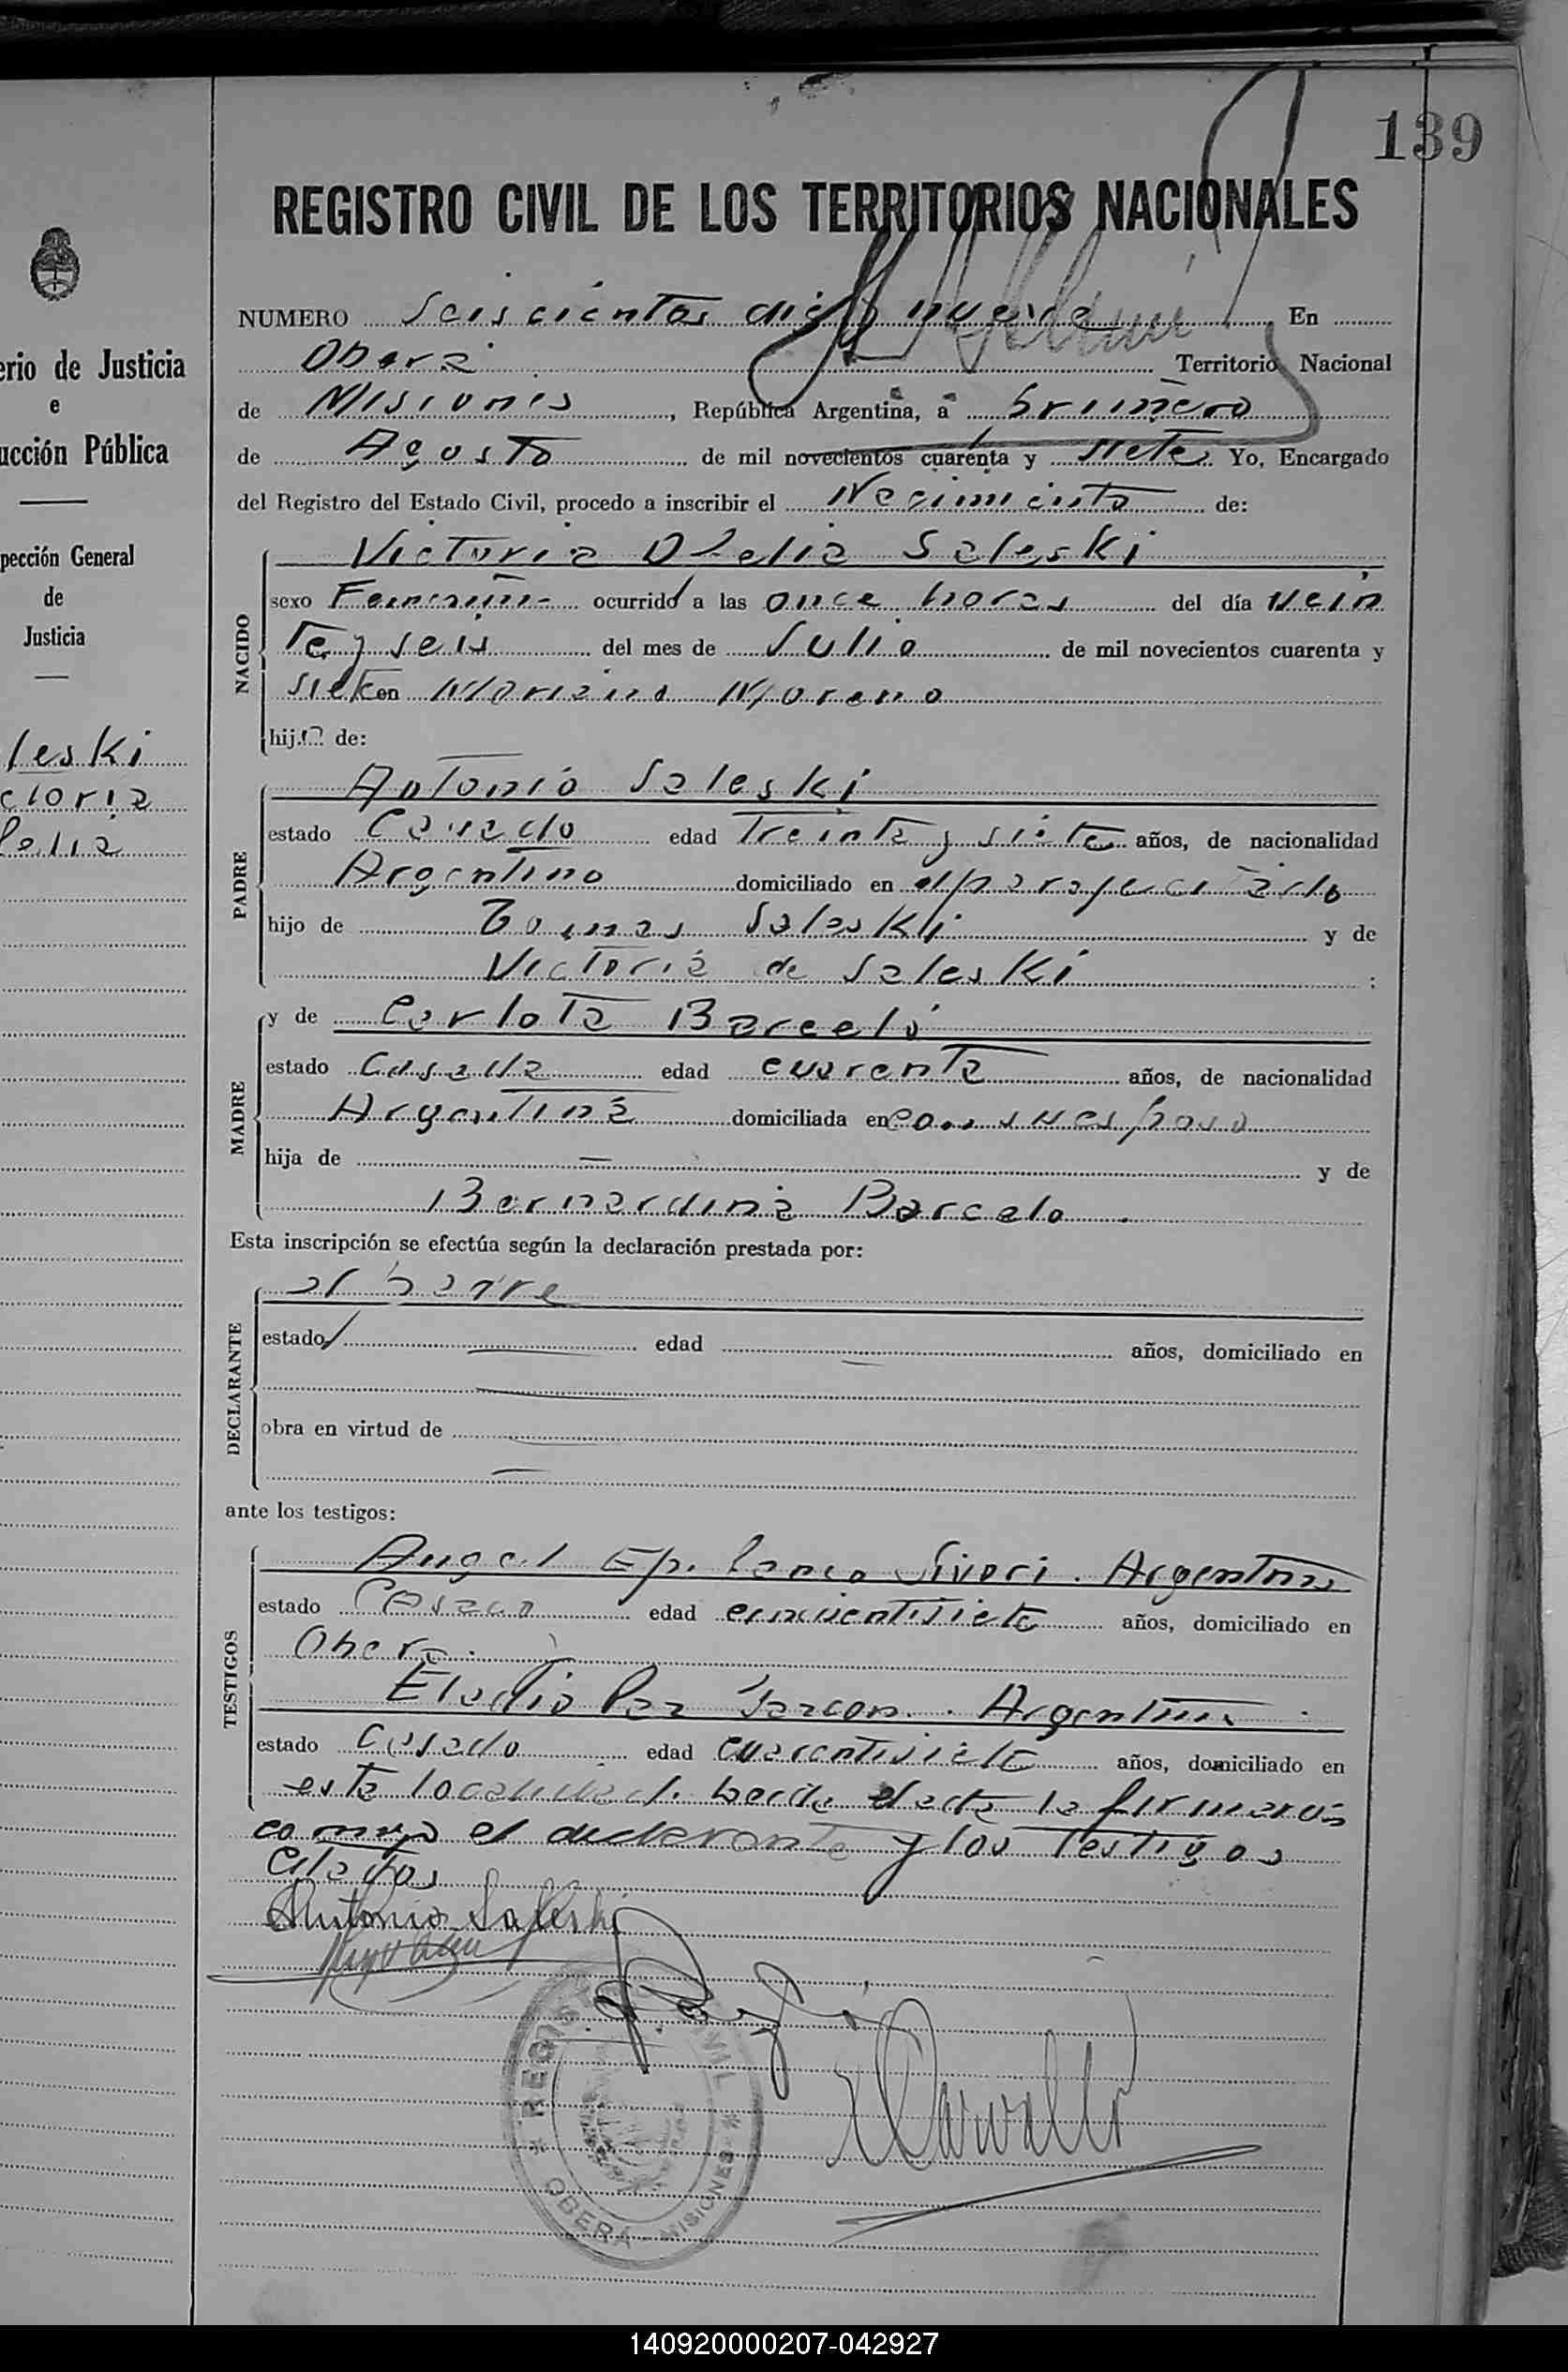 139
REGISTRO CIVIL DE LOS TERRITORIOS NACIONALES
NUMERO Seiscientos diez y nueve En
Oberá Territorio Nacional
de Misiones, República Argentina, a primero
de Agosto de mil novecientos cuarenta y siete Yo, Encargado
del Registro del Estado Civil, procedo a inscribir el Nacimiento de:
NACIDO
Victoria Ofelia Saleski
sexo Femenino ocurrido a las once horas del día vein
te y seis del mes de Julio de mil novecientos cuarenta y
siete en Mariano Moreno
hija de:
PADRE
Antonio Saleski
estado Casado edad treinta y siete años, de nacionalidad
Argentino domiciliado en
hijo de Tomas Saleski y de
Victoria de Saleski ;
MADRE
y de Carlota Barceló
estado Casada edad cuarenta años, de nacionalidad
Argentina domiciliada en con su esposo
hija de — y de
Bernardina Barcelo
Esta inscripción se efectúa según la declaración prestada por:
DECLARANTE
el padre
estado edad años, domiciliado en
obra en virtud de
ante los testigos:
TESTIGOS
Angel Argentino
estado Casado edad cincuentisiete años, domiciliado en
Oberá.
Eladio Paz Garzon. Argentino
estado Casado edad cuarentisiete años, domiciliado en
esta localidad. Leida el acta la firmaron
conmigo el declarante y los testigos
citados
Antonio Saleski
REGISTRO CIVIL
OBERÁ - MISIONES
erio de Justicia
e
ucción Pública
pección General
de
Justicia
leski
ctoria
felia
140920000207-042927